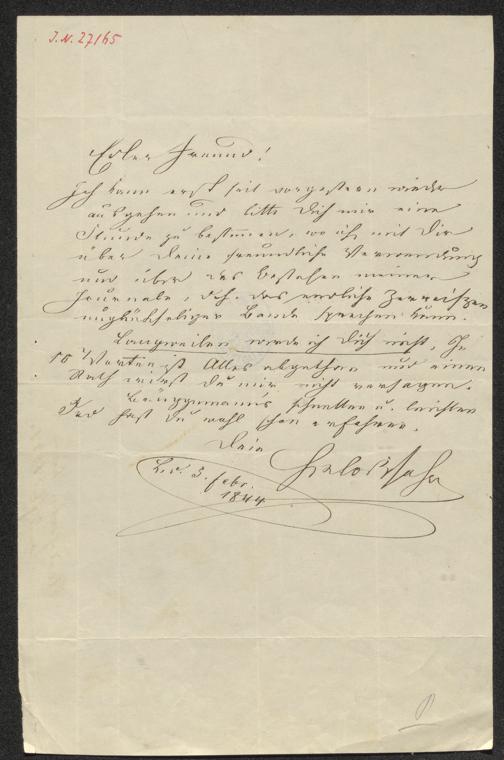 J.N. 27165
Edler Freund!
Ich kann erst seit vorgestern wieder
ausgehen und bitte Dich mir eine
Stunde zu bestimmen, wo ich mit Dir
über Deine freundliche Verwendung
und über das Bestehen meiner
Journale, d.h. das endliche Zerreißen
unglückseliger Bande sprechen kann.
Langweilen werde ich Dich nicht, In
10 Worten ist Alles abgethan und einen
Rath wirst Du mir nicht versagen.
schnellen u. leichten
Tod hast Du wohl schon erfahren.
Dein
3. Febr.
1844